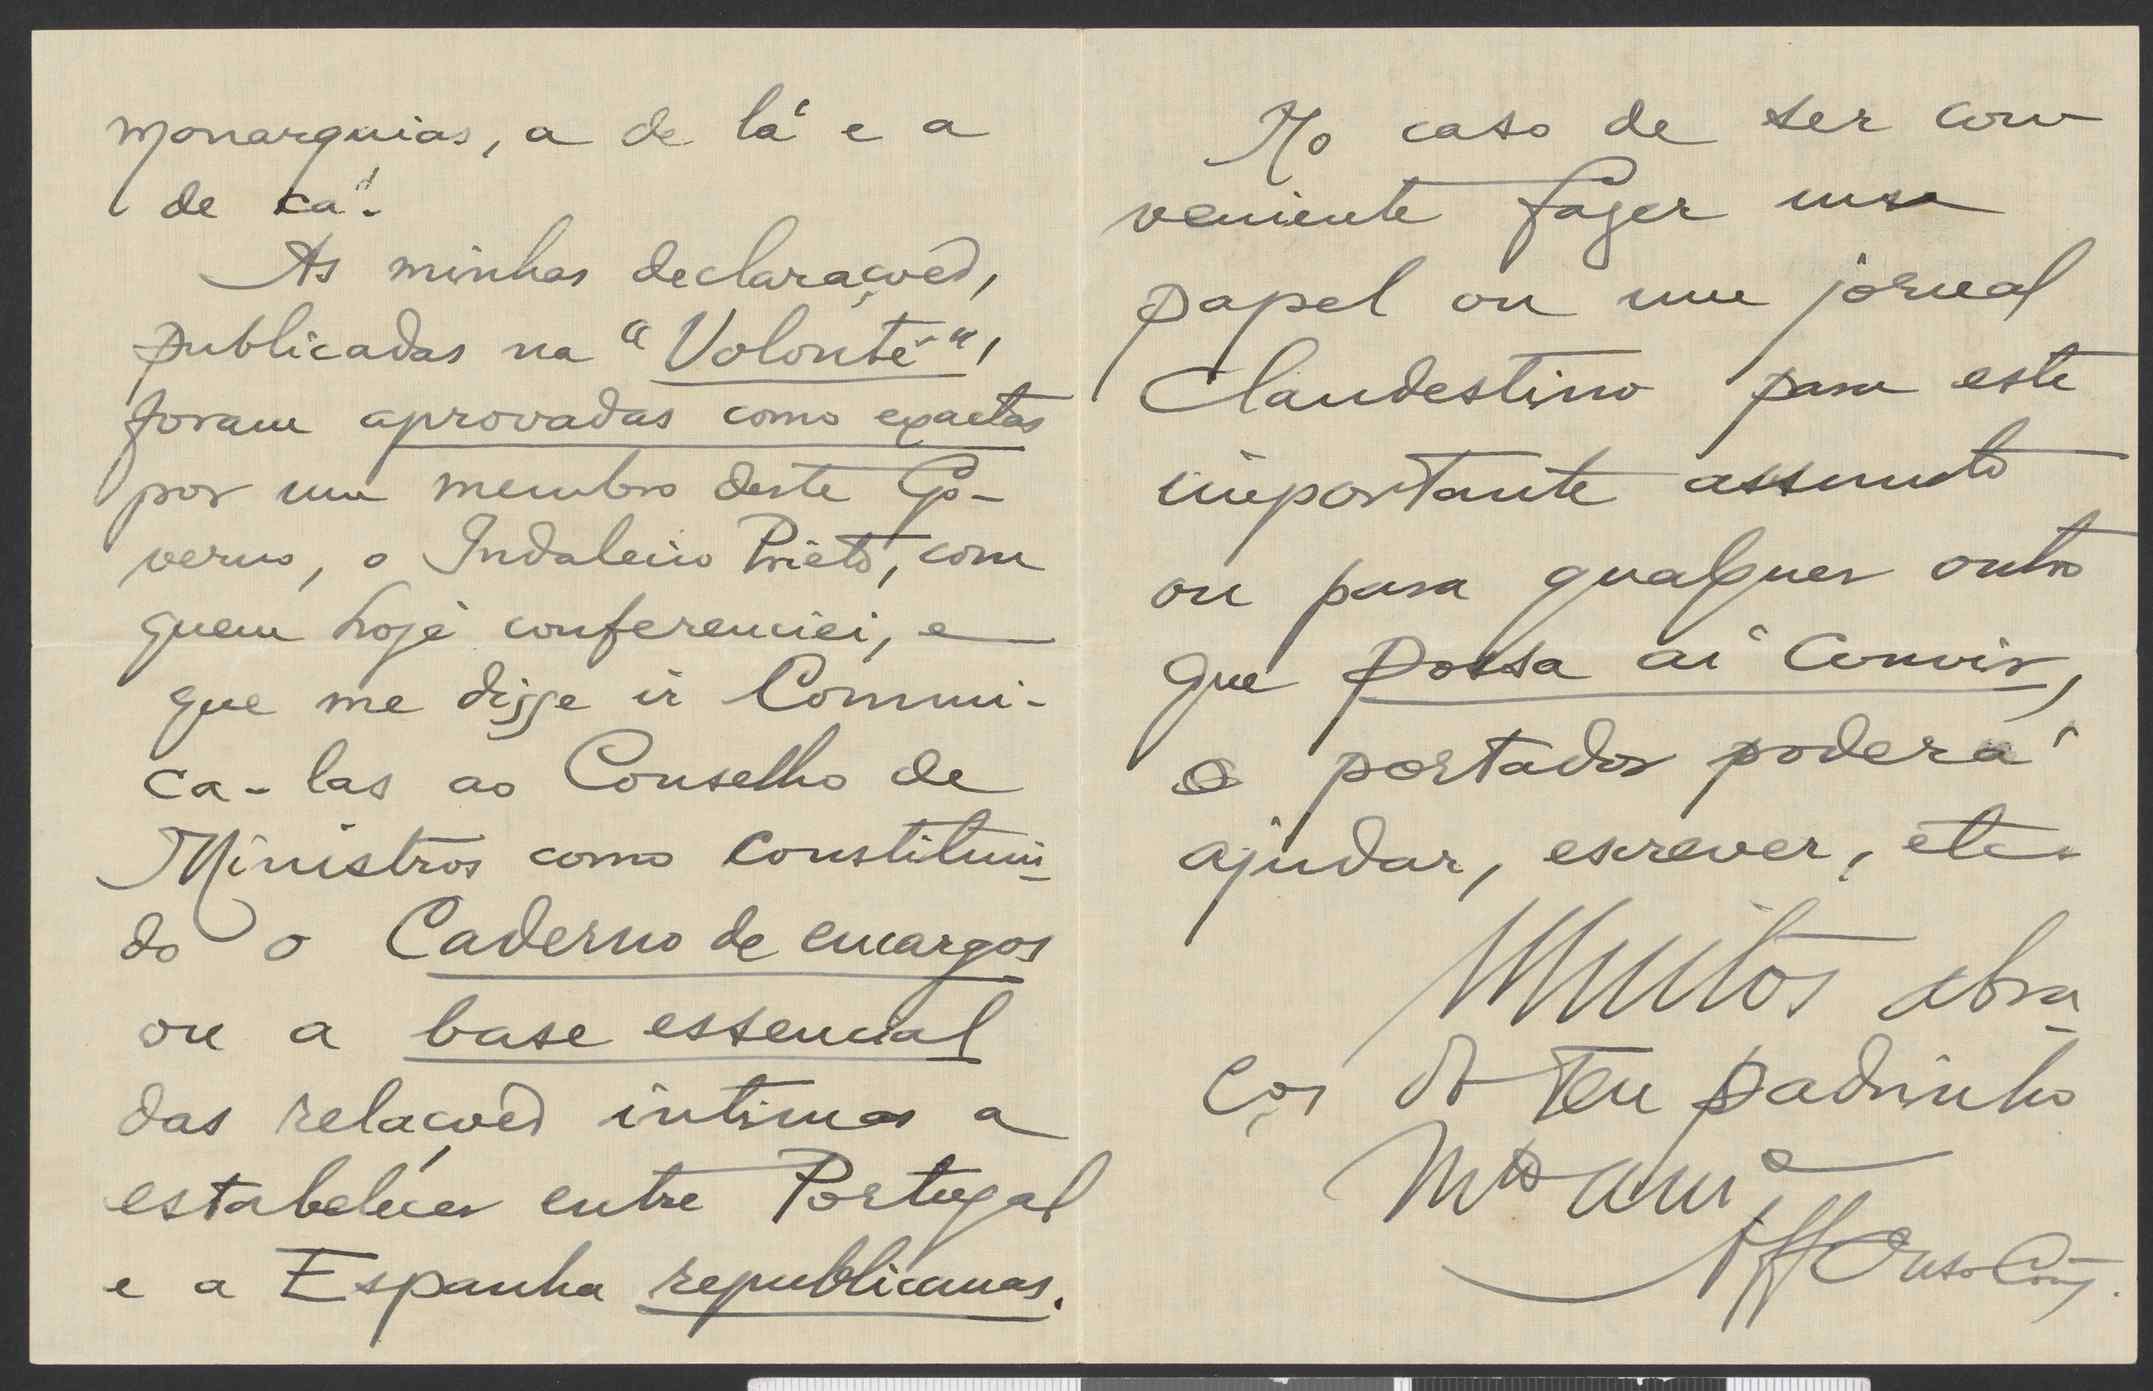 monarquias, a de lá e a
de cá.
As minhas declarações,
publicadas na "Volonté",
foram aprovadas como exactas
por um membro deste Go-
verno, o Indalecio Prieto, com
quem hoje conferenciei, e
que me disse ir commu-
ca-las ao Conselho de
Ministros como constitui-
do o Caderno de encargos
ou a base essencial
das relações intimas a
estabelecer entre Portugal
e a Espanha republicanas.
No caso de ser con-
veniente fazer um
papel ou um jornal
clandestino para este
importante assunto
ou para qualquer outro
que possa aí convir,
o portador poderá
ajudar, escrever, etc.
Muitos abra-
ços do teu padrinho
mto amo
Affonso Costa